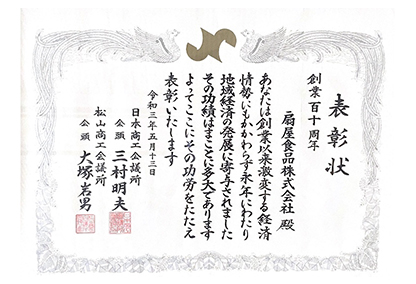 表彰状
創業百十周年
扇屋食品株式会社 殿
あなたは創業以来激変する経済
情勢にもかかわらず永年にわたり
地域経済の発展に寄与されました
その功績はまことに多大であります
よってここにその功労をたたえ
表彰いたします
令和三年五月十三日
日本商工会議所
会頭 三村明夫
松山商工会議所
会頭 大塚岩男